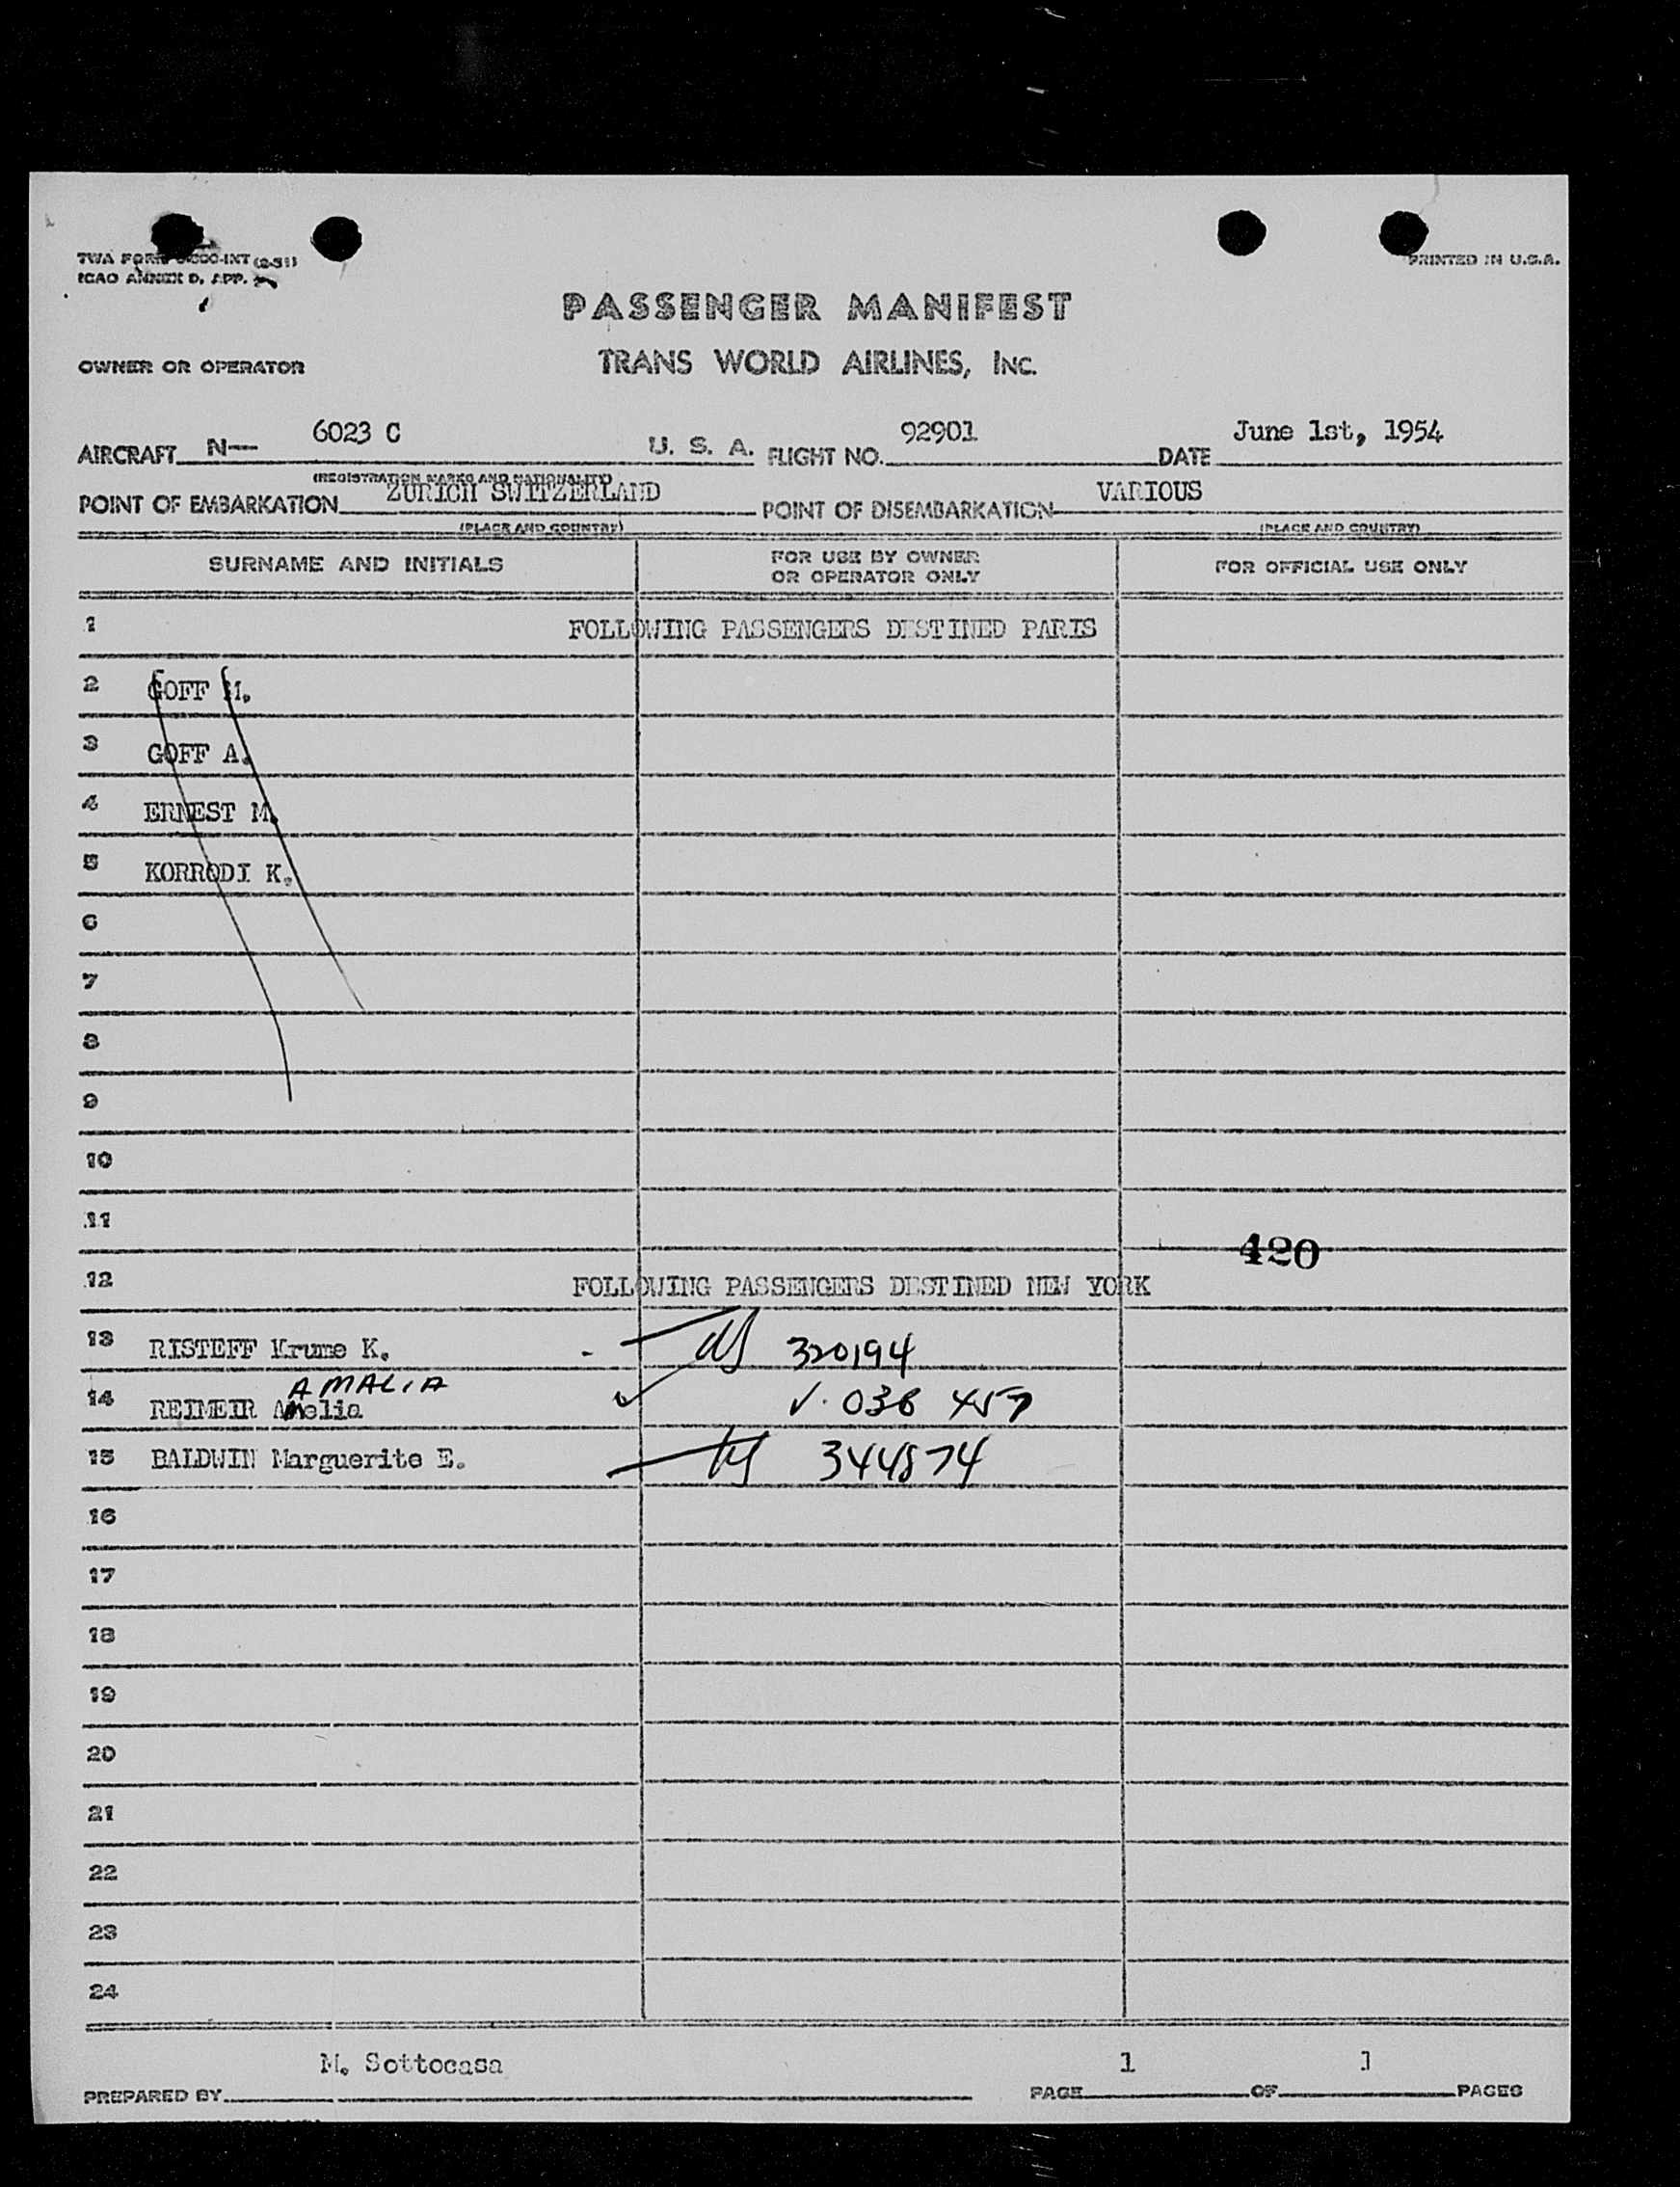 TWA FORM (2-51)
ICAO ANNEX D. APP.
PRINTED IN U.S.A.
PASSENGER MANIFEST
OWNER OR OPERATOR TRANS WORLD AIRLINES, INC.
AIRCRAFT N— 6023 C U. S. A. FLIGHT NO. 92901 DATE June 1st, 1954
(REGISTRATION MARKS AND NATIONALITY)
POINT OF EMBARKATION ZURICH SWITZERLAND POINT OF DISEMBARKATION VARIOUS
(PLACE AND COUNTRY) (PLACE AND COUNTRY)
SURNAME AND INITIALS FOR USE BY OWNER OR OPERATOR ONLY FOR OFFICIAL USE ONLY
1 FOLLOWING PASSENGERS DESTINED PARIS
2 GOFF M.
3 GOFF A.
4 ERNEST M.
5 KORRODI K.
6
7
8
9
10
11
420
12 FOLLOWING PASSENGERS DESTINED NEW YORK
13 RISTEFF Krume K. 320194
AMALIA
14 REIMEIR Amelia V. 038 457
15 BALDWIN Marguerite E. 344874
16
17
18
19
20
21
22
23
24
PREPARED BY M. Sottocasa PAGE 1 OF 1 PAGES